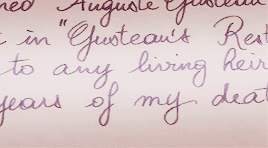 ned Auguste Gusteau
t in "Gusteau's Rest
to any living heir
years of my deat